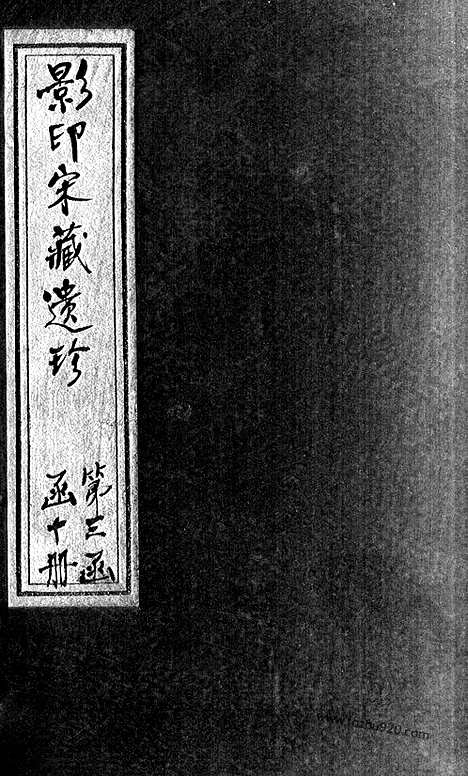 影印宋藏遺珍
第三函
函十册
www.fozhu920.com